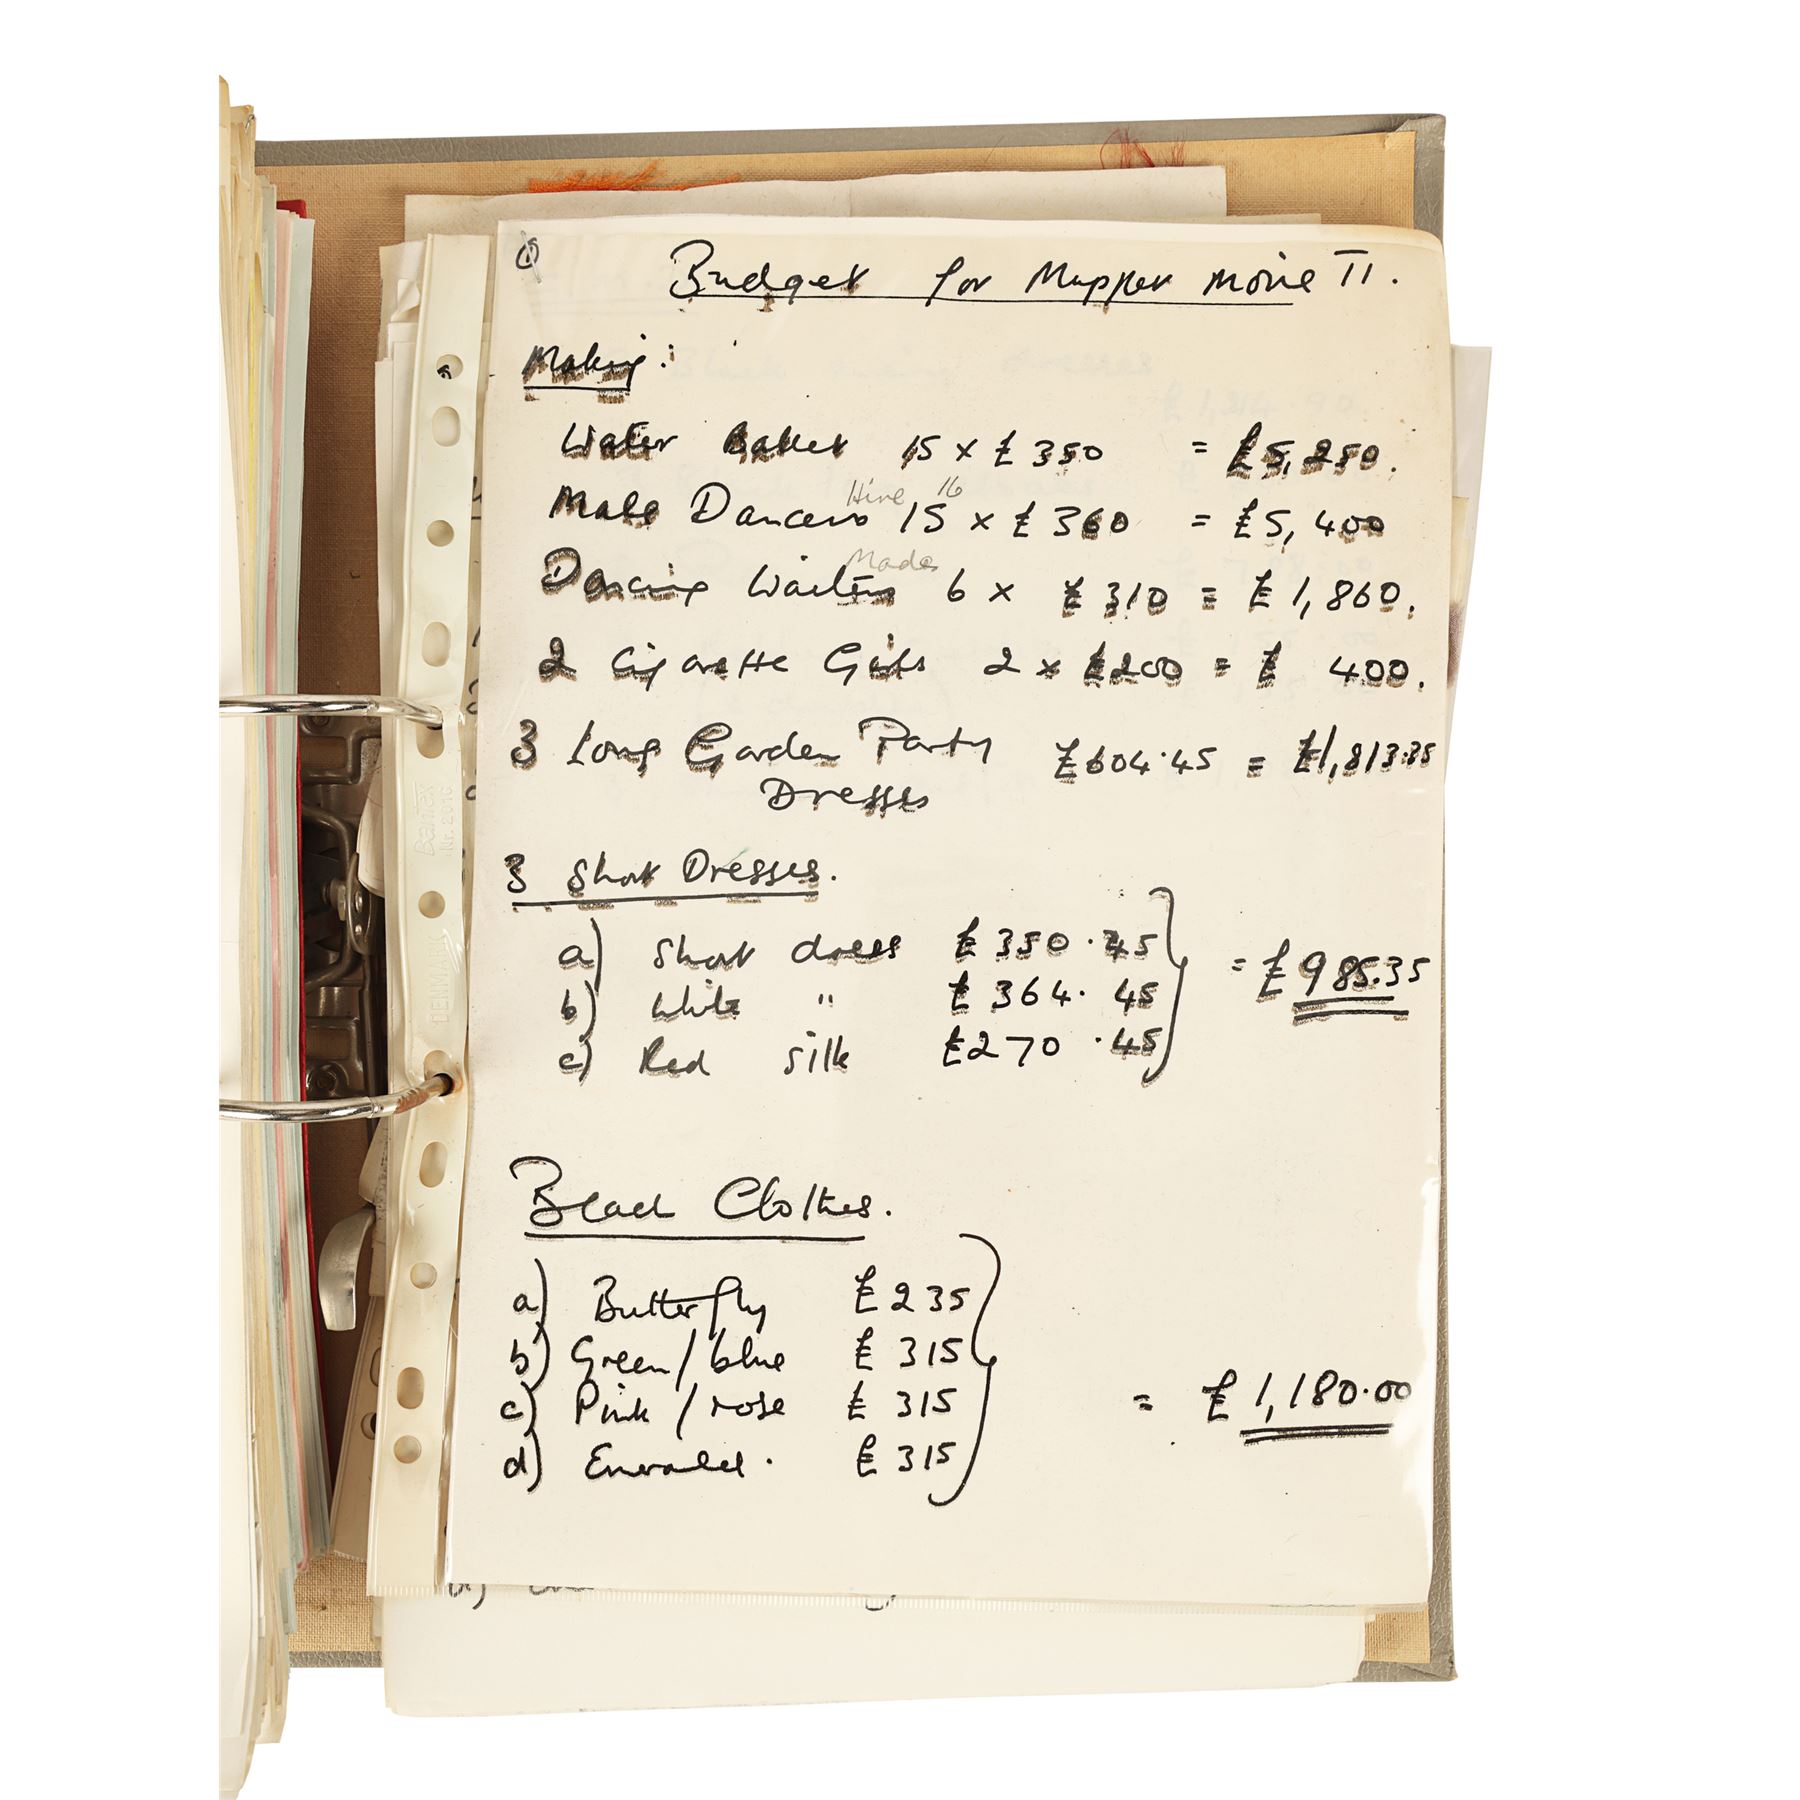 1
Budget for Muppet Movie II.
Making:
Water Ballet 15 x £350 = £5,250.
Hire 16
Male Dancers 15 x £360 = £5,400
Made
Dancing Waiters 6 x £310 = £1,860.
2 Cigarette Girls 2 x £200 = £ 400.
3 Long Garden Party £604.45 = £1,813.35
Dresses
3 Short Dresses.
a) Short dress £350.45
b) White " £364.45 = £985.35
c) Red silk £270.45
Bead Clothes.
a) Butterfly £235
b) Green/blue £315
c) Pink/rose £315 = £1,180.00
d) Emerald. £315
Bantex
Nr. 2016
DENMARK